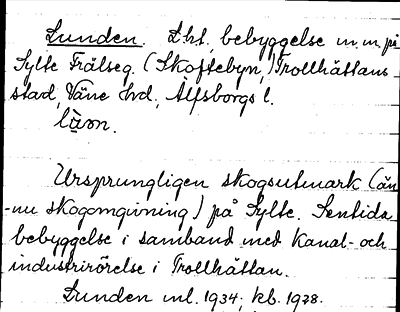 Lunden. Lht, bebyggelse m.m. på
Sylte Frälseg. (Skoftebyn,) Trollhättans
stad, Väne hd, Älfsborgs l.
lùn.
Ursprungligen skogsutmark (än-
-nu skogomgivning) på Sylte. Sentida
bebyggelse i samband med kanal- och
industrirörelse i Trollhättan.
Lunden ml. 1934; kb. 1928.